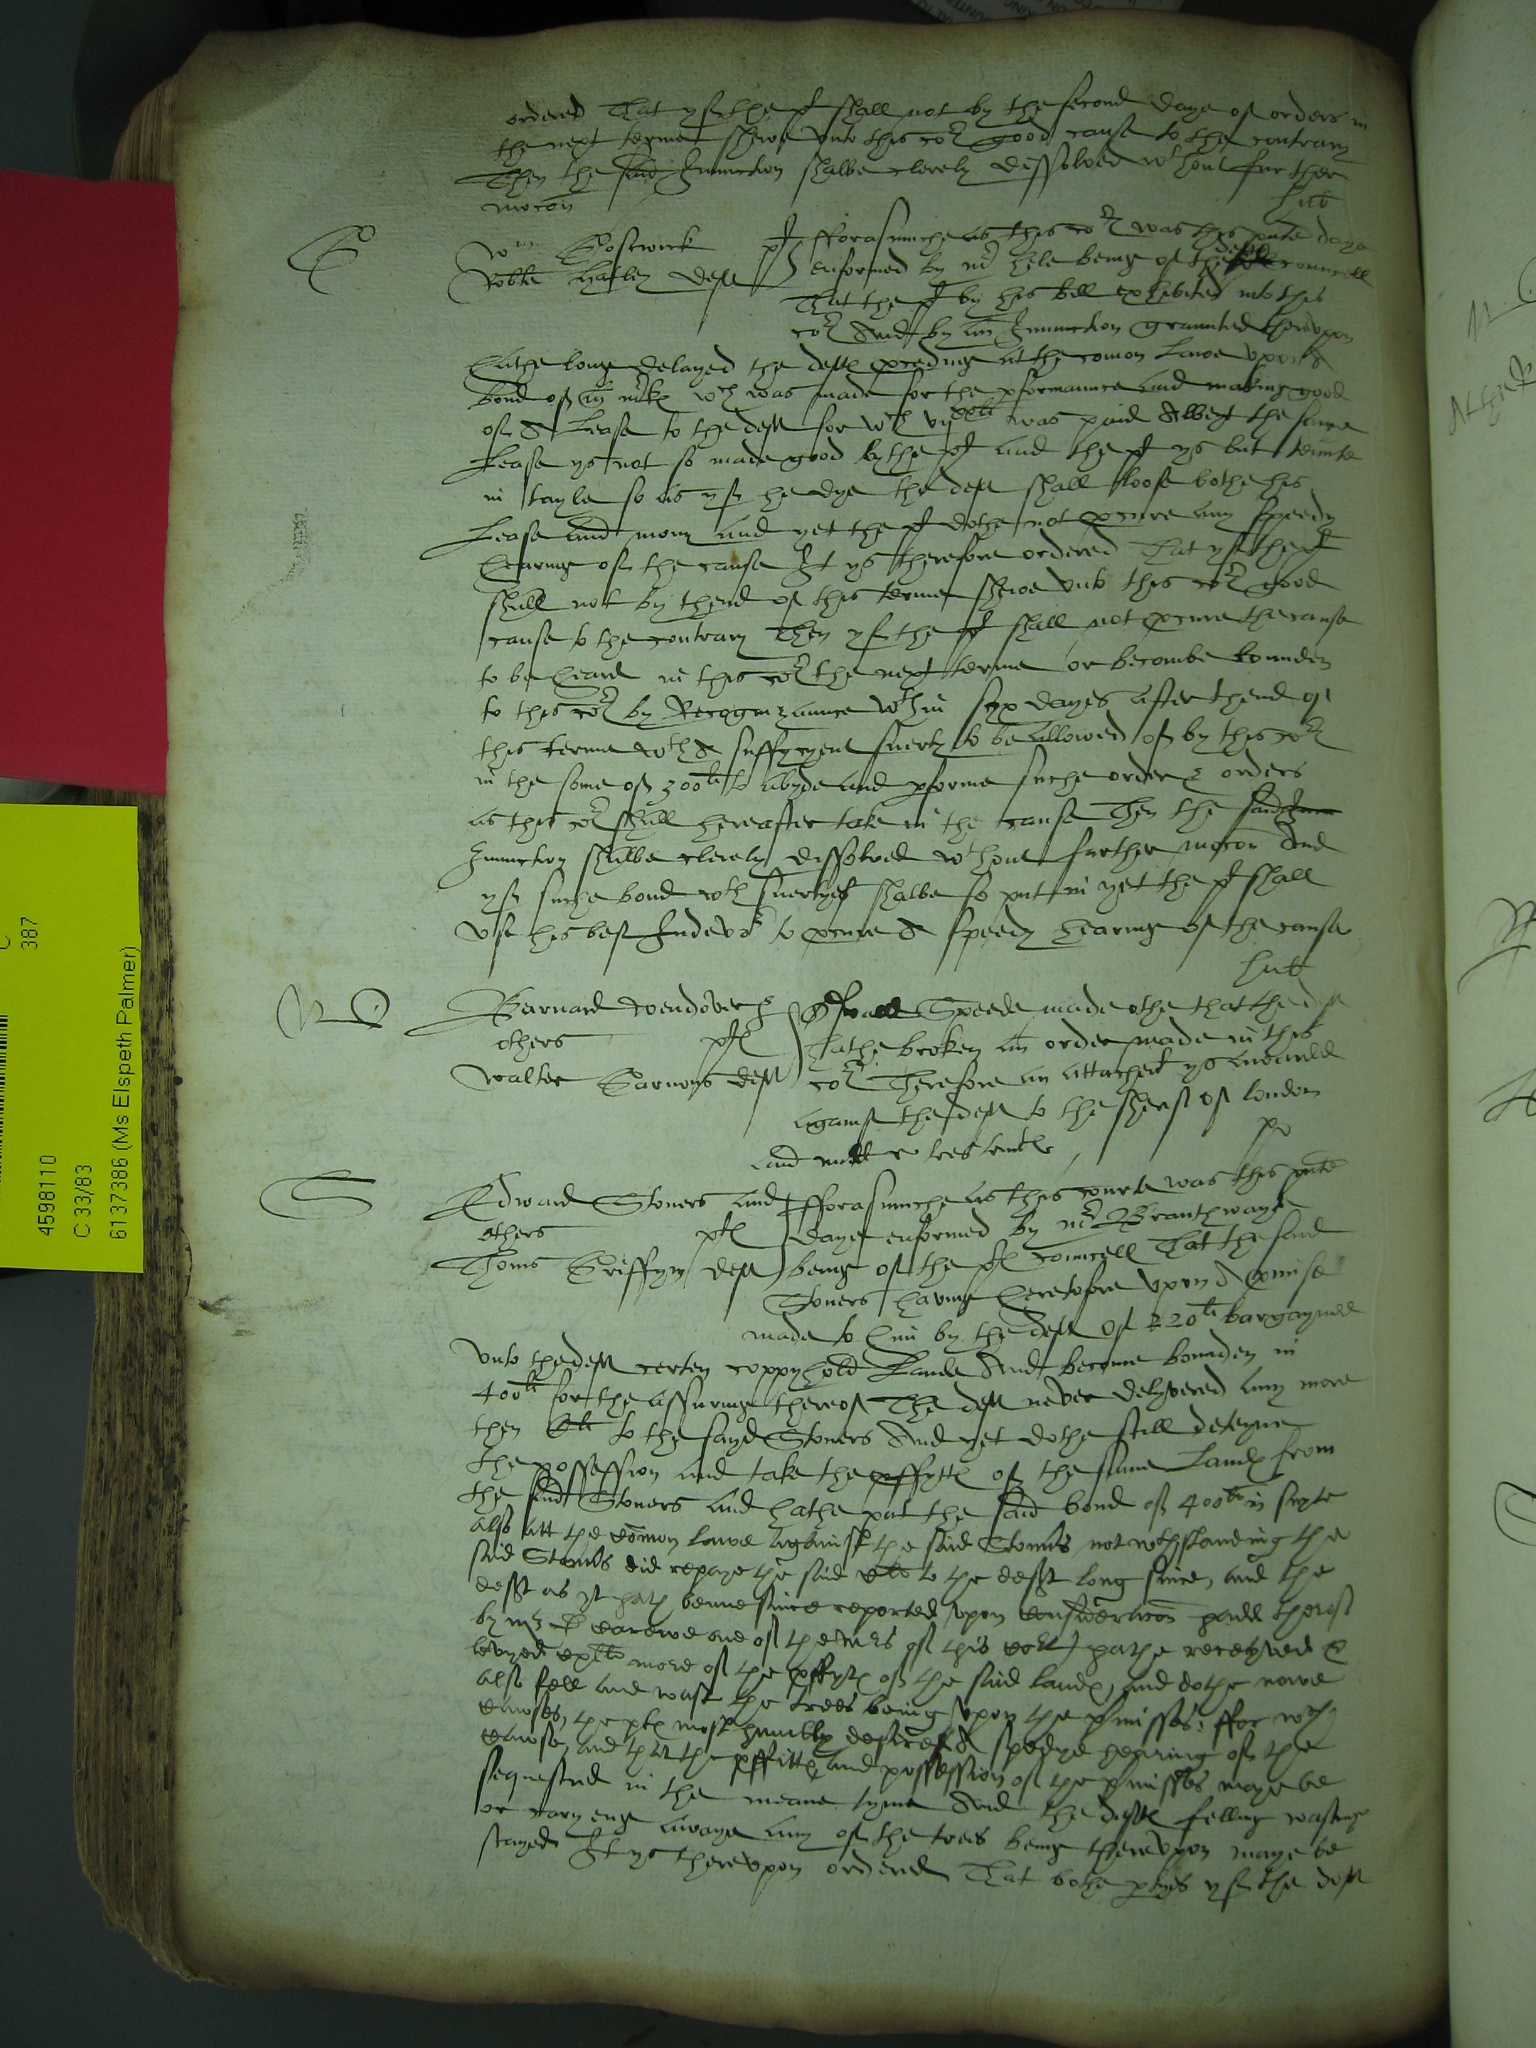 ordered That yf the pl shall not by the second daye of orders in
the next terme shewe vnto this cort good cause to the contrary
Then the said Iniunction shalbe clerely dissolved wthout further
mocon
G
Wm Bostwick pl
Robte Hatley deft
fforasmuche as this cort was this pnte daye
enformed by mr Hele being of the defts councell
That the pl by his bill exhibited into this
cort And by an Iniunction graunted therevpon
hathe longe delayed the deft pceding at the comon Lawe vpon a
bond of mrks wch was made for the pformaunce and making good
of A Lease to the deft for wch was paid Albeyt the same
Lease ys not so made good by the pl and the pl ys but tennte
in tayle so as yf he dye the deft shall loose bothe his
Lease and mony and yet the pl dothe not pcure any speedy
hearing of the cause It ys therefore ordered That yf the pl
shall not by thend of this terme shewe vnto this cort good
cause to the contrary Then yf the pl shall not pcure the cause
to be heard in this cort the next terme or become bounden
to this cort by Recognizaunce wthin syx dayes after thend of
this terme wth A suffycyent suerty to be allowed of by this cort
in the some of 300li to abyde and pforme suche order & orders
as this cort shall hereafter take in the cause Then the said Iniu
Iniunction shalbe clerely dissolved wthout further mocon And
yf suche bond wth suertyes shalbe so put in yet the pl shall
vse his best Indevor to pcure A speedy hearing of the cause
Barnard Wendover &
others pls
Walter deft
Speede made othe that the deft
hathe broken an order made in this
cort Therefore an attachemt ys awarded
against the deft to the Sherif of london
and
S
Edward Stoners and
others pls
Thoms Griffyn deft
fforasmuche as this courte was this pnte
daye enformed by mr Branthwayte
being of the pls councell That the said
Stoners having heretofore vpon A pmise
made to him by the deft of 220li bargayned
vnto the deft certen coppyhold Lands And become bounden in
400li for the assuring thereof The deft never delyvered any more
then to the sayd Stoners And yet dothe still deteyne
the possession and take the pffytts of the same Lands from
the said Stoners and hathe put the said bond of 400li in suyte
also att the comon lawe against the said Stoners not wthstanding the
said Stoners did repaye the said to the deft long since, and the
deft as yt hath benne since reported vpon consideracon hadd thereof
by mr Carewe one of the mrs of this cort hathe receyved &
levyed more of the pffytts of the said lands, and dothe nowe
also fell and wast the trees being vpon the pmisses: ffor wch
causes, the pls most humbly desired A spedye hearing of the
cawse, and that the pffitts and possession of the pmisses maye be
sequestred in the meane tyme And the defts felling wasting
or caryeng awaye any of the trees being therevpon maye be
stayed It ys therevpon ordered That bothe ptyes yf the deft
4598110
C 33/83
6137386 (Ms Elspeth Palmer)
387